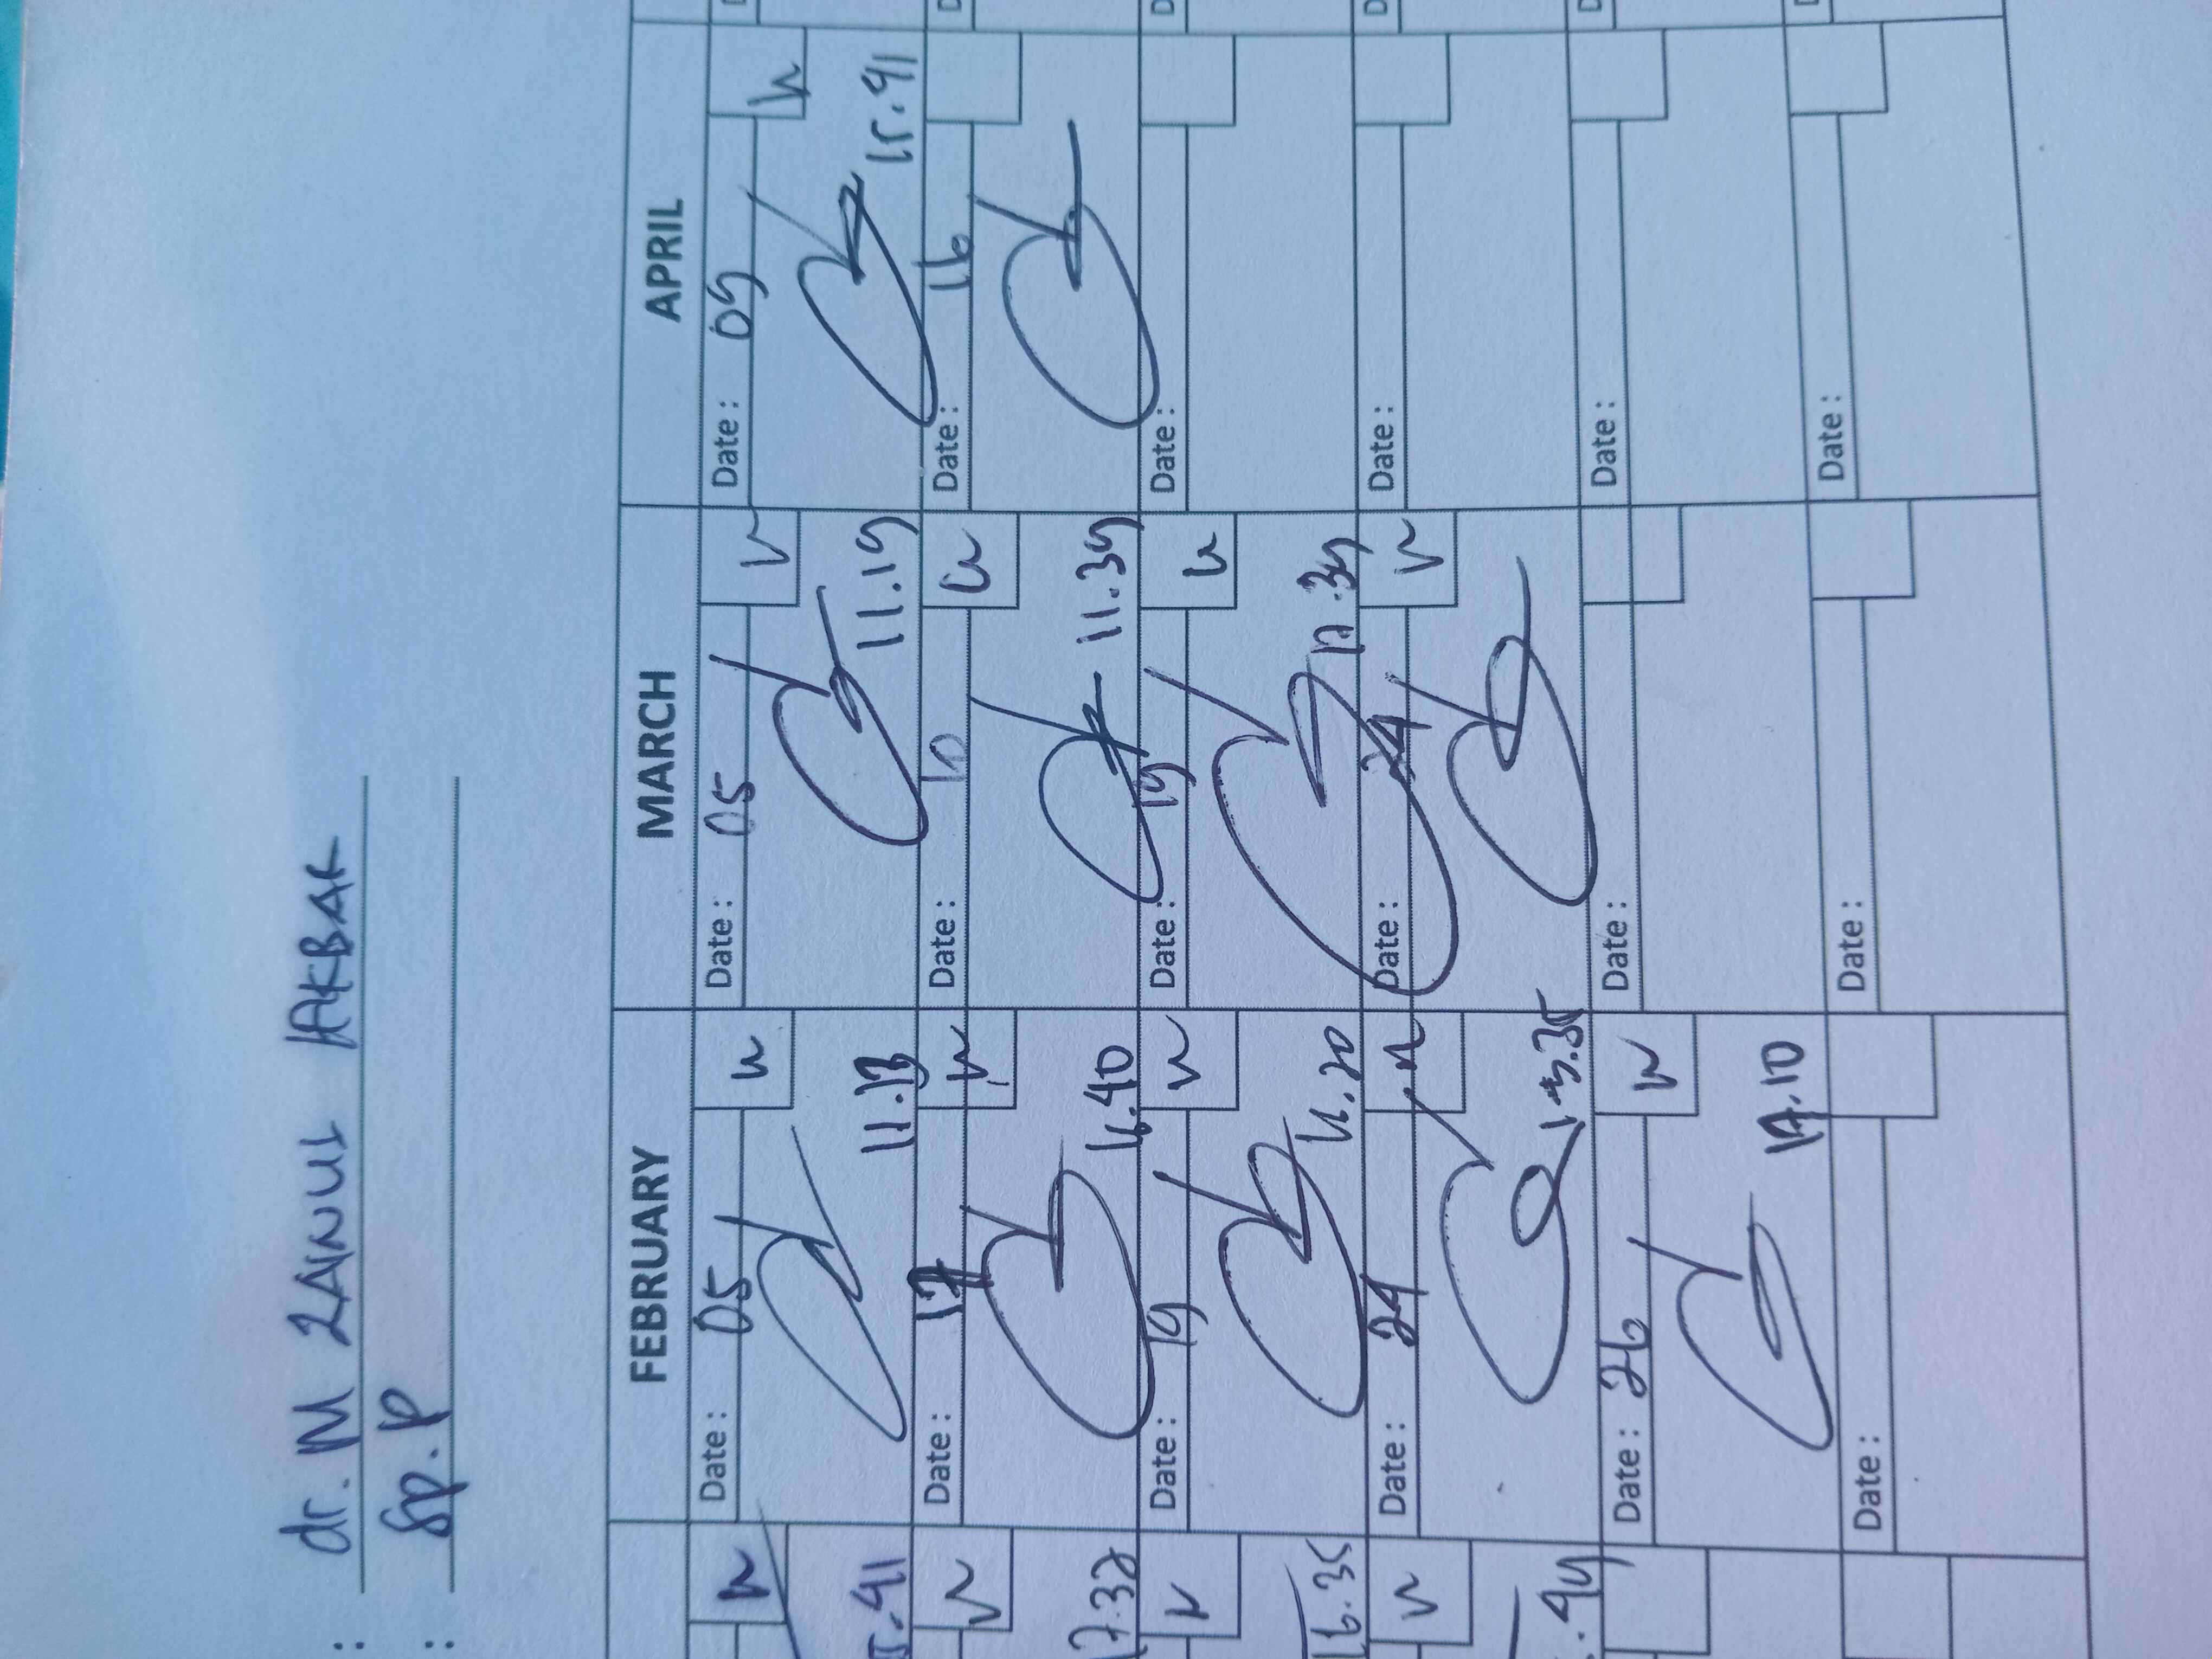 : dr. M ZAINUL AKBAR
: Sp.P
FEBRUARY MARCH APRIL
Date : 05 Date : 05 Date : 09
11.13 11.19 15.41
Date : 17 Date : 10 Date : 16
17.32 16.40 11.39
Date : 19 Date : 19 Date :
16.35 16.20 17.39
Date : 24 Date : 24 Date :
15.35
Date : 26 Date : Date :
17.10
Date : Date : Date :